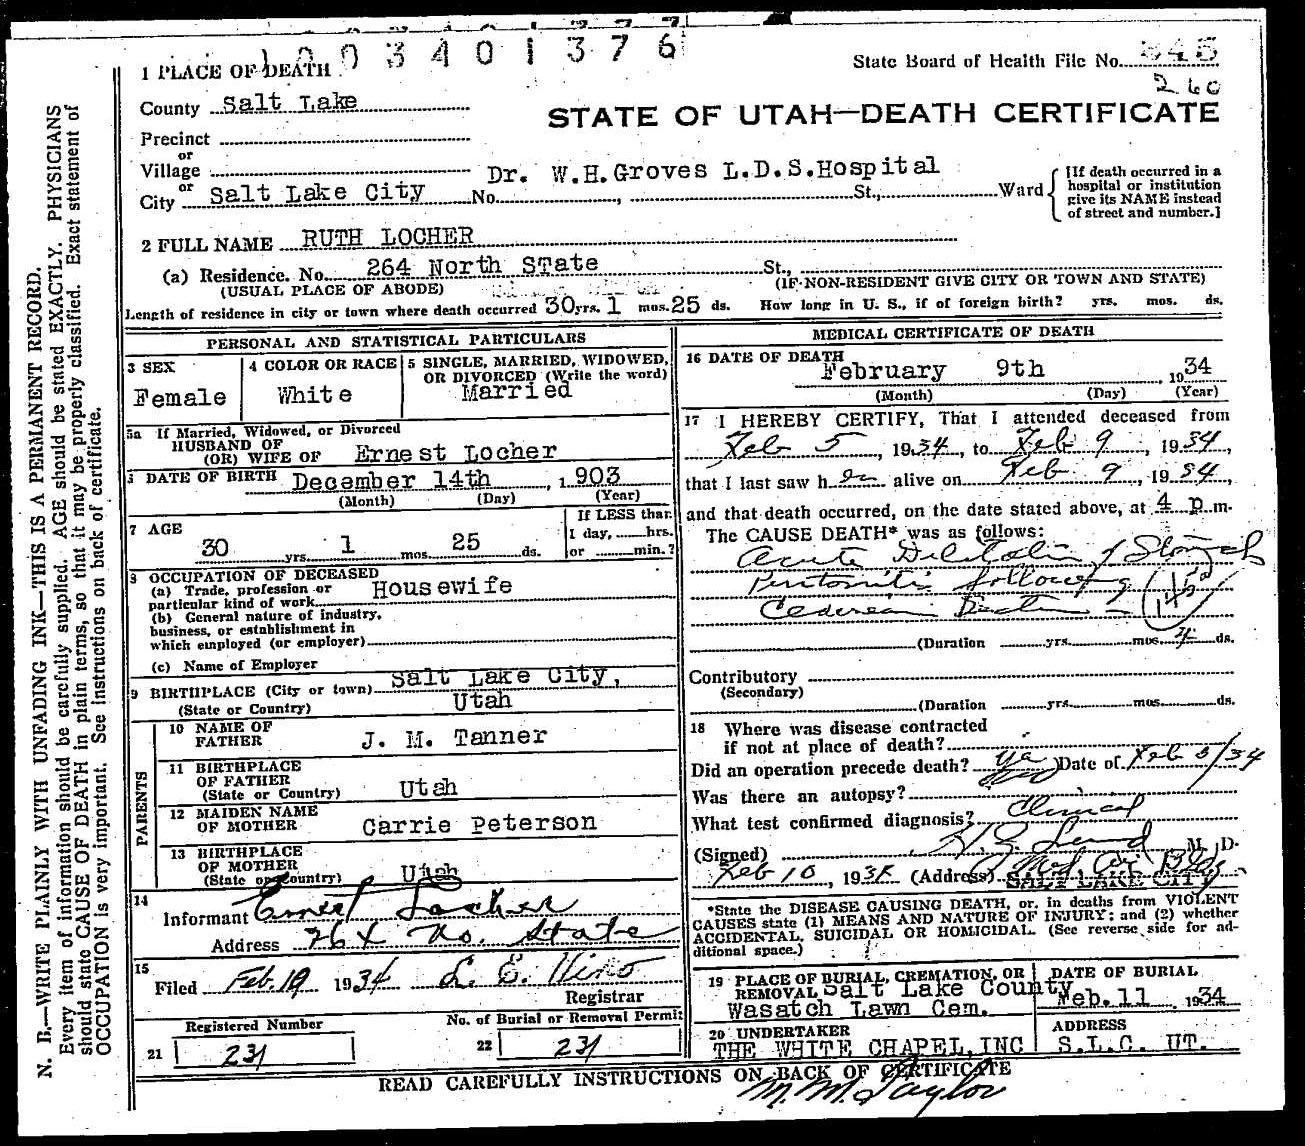 1003401376
State Board of Health File No. 345
260
STATE OF UTAH—DEATH CERTIFICATE
1 PLACE OF DEATH
County Salt Lake
Precinct
or
Village
or
City Salt Lake City No. St., Ward
Dr. W.H.Groves L.D.S.Hospital
[If death occurred in a
hospital or institution
give its NAME instead
of street and number.]
2 FULL NAME RUTH LOCHER
(a) Residence. No. 264 North STate St.,
(USUAL PLACE OF ABODE) (IF NON-RESIDENT GIVE CITY OR TOWN AND STATE)
Length of residence in city or town where death occurred 30 yrs. 1 mos. 25 ds. How long in U. S., if of foreign birth? yrs. mos. ds.
PERSONAL AND STATISTICAL PARTICULARS
3 SEX
Female
4 COLOR OR RACE
White
5 SINGLE, MARRIED, WIDOWED,
OR DIVORCED (Write the word)
Married
5a If Married, Widowed, or Divorced
HUSBAND OF
(OR) WIFE OF Ernest Locher
DATE OF BIRTH December 14th, 1903
(Month) (Day) (Year)
7 AGE
30 yrs. 1 mos. 25 ds.
If LESS than
1 day, hrs.
or min.?
8 OCCUPATION OF DECEASED
(a) Trade, profession or
particular kind of work Housewife
(b) General nature of industry,
business, or establishment in
which employed (or employer)
(c) Name of Employer
9 BIRTHPLACE (City or town) Salt Lake City,
(State or Country) Utah
PARENTS
10 NAME OF
FATHER J. M. Tanner
11 BIRTHPLACE
OF FATHER
(State or Country) Utah
12 MAIDEN NAME
OF MOTHER Carrie Peterson
13 BIRTHPLACE
OF MOTHER
(State or Country) Utah
14
Informant Ernest Locher
Address 264 No. State
15
Filed Feb. 10 1934 L. E. Viko
Registrar
Registered Number
21 231
No. of Burial or Removal Permit
22 231
MEDICAL CERTIFICATE OF DEATH
16 DATE OF DEATH
February 9th, 1934
(Month) (Day) (Year)
17 I HEREBY CERTIFY, That I attended deceased from
Feb 5, 1934, to Feb 9, 1934,
that I last saw her alive on Feb 9, 1934,
and that death occurred, on the date stated above, at 4 p.m.
The CAUSE DEATH* was as follows:
Acute Dilitation of Stomach
Peritonitis following
Cesarean Section
145
(Duration yrs. mos. 4 ds.
Contributory
(Secondary)
(Duration yrs. mos. ds.
18 Where was disease contracted
if not at place of death?
Did an operation precede death? yes Date of Feb 5/34
Was there an autopsy?
What test confirmed diagnosis? Clinical
(Signed) M. D.
Feb 10, 1934 (Address) Med Art Bldg
SALT LAKE CITY
*State the DISEASE CAUSING DEATH, or, in deaths from VIOLENT
CAUSES state (1) MEANS AND NATURE OF INJURY; and (2) whether
ACCIDENTAL, SUICIDAL OR HOMICIDAL. (See reverse side for ad-
ditional space.)
19 PLACE OF BURIAL, CREMATION, OR
REMOVAL Salt Lake County
Wasatch Lawn Cem.
DATE OF BURIAL
Feb.11 1934
20 UNDERTAKER
THE WHITE CHAPEL,INC
ADDRESS
S.L.C. UT.
READ CAREFULLY INSTRUCTIONS ON BACK OF CERTIFICATE
M. M. Taylor
N. B.—WRITE PLAINLY WITH UNFADING INK—THIS IS A PERMANENT RECORD.
Every item of information should be carefully supplied. AGE should be stated EXACTLY. PHYSICIANS
should state CAUSE OF DEATH in plain terms, so that it may be properly classified. Exact statement of
OCCUPATION is very important. See instructions on back of certificate.